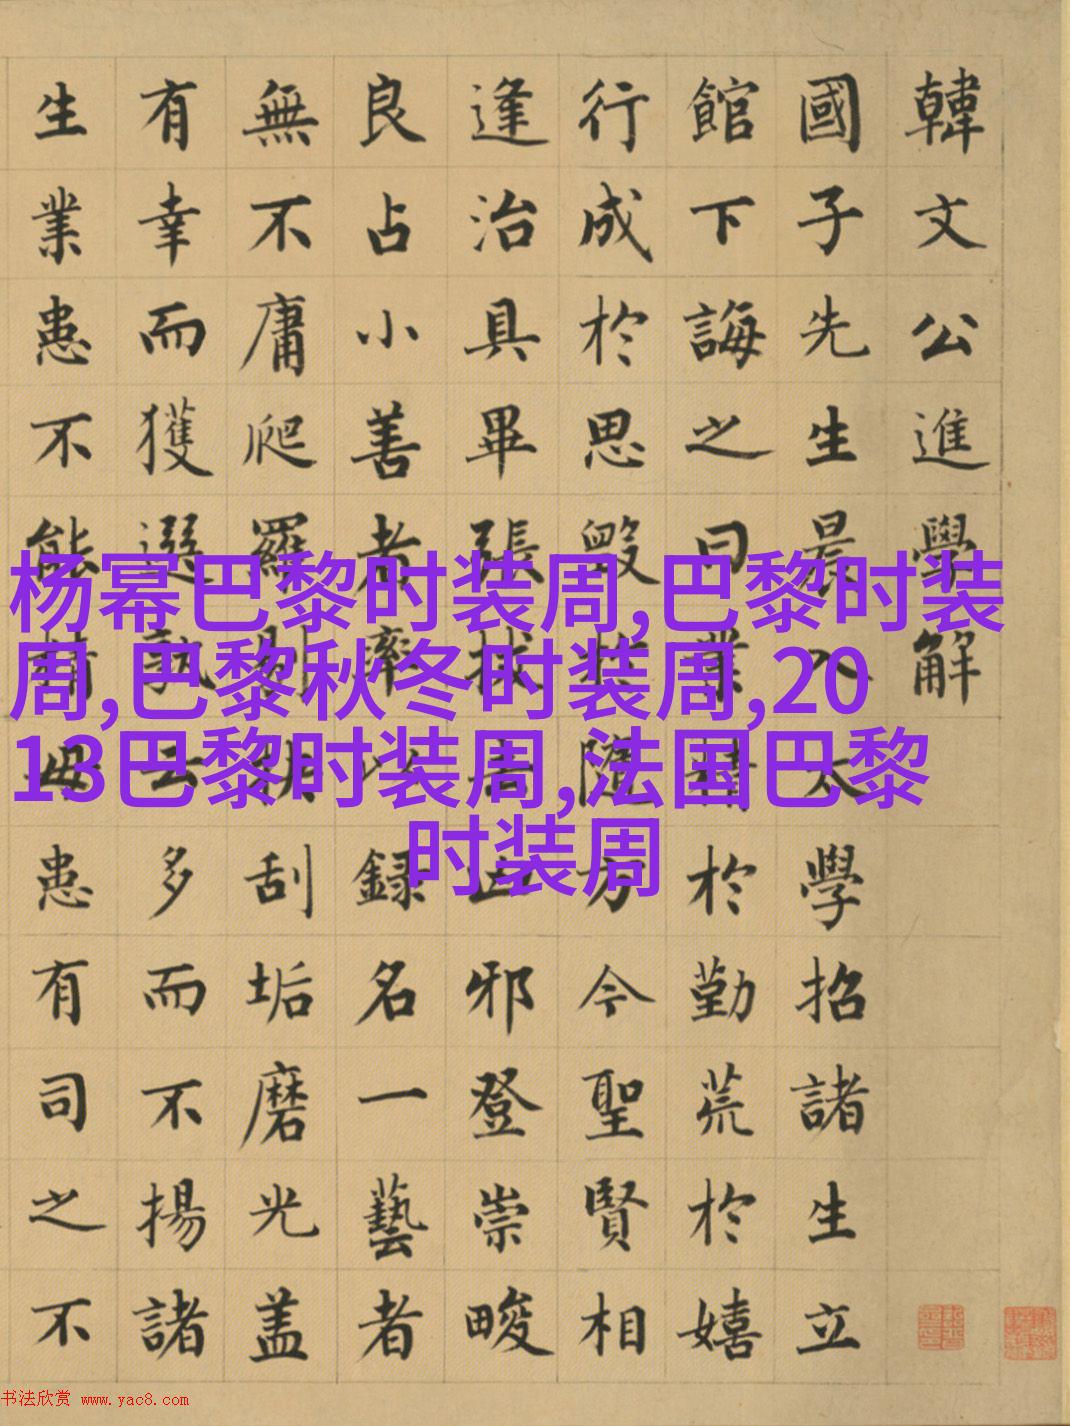 韓文公進學解
國子先生晨入太學招諸生立
館下誨之曰業精於勤荒於嬉
行成於思毀於隨方今聖賢相
逢治具畢張拔去凶邪登崇畯
良占小善者率以録名一藝者
無不庸爬羅剔抉刮垢磨光盖
有幸而獲選孰云多而不揚諸
生業患不能精毋患有司之不
杨幂巴黎时装周,巴黎时装
周,巴黎秋冬时装周,20
13巴黎时装周,法国巴黎
时装周
书法欣赏 www.yac8.com